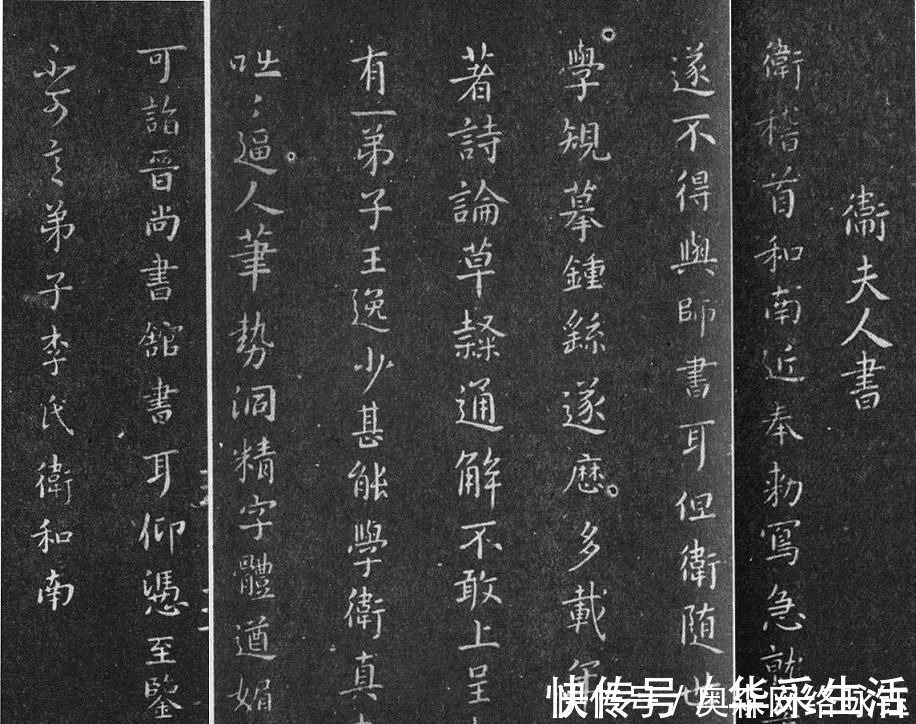 衛夫人書
衛稽首和南近奉勅寫急就
遂不得與師書耳但衛随世
學規摹鍾繇遂歴多載年
著詩論草隸通解不敢上呈
有一弟子王逸少甚能學衛真
咄〻逼人筆勢洞精字體遒媚
可詣晉尚書舘書耳仰憑至鑒
弟子李氏衛和南
快传号/
华采生活